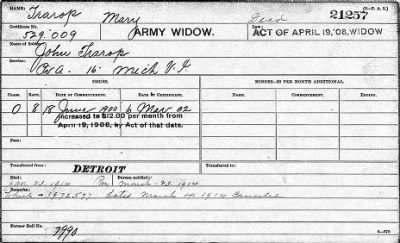 (3—P. A. S.)
NAME: Trarop Mary Dead 21257
Certificate No. 529.009 ARMY WIDOW. Law: ACT OF APRIL 19,'08, WIDOW
Name of Soldier: John Trarop
Service: Co A. 16. Mich V. I.
ISSUES. MINORS—$2 PER MONTH ADDITIONAL.
CLASS. RATE. DATE OF COMMENCEMENT. DATE OF CERTIFICATE.
O 8 18 June 1900 6 Mar 02
Increased to $12.00 per month from
April 19, 1908, by Act of that date.
Transferred from DETROIT Transferred to
Died Jan 1914 Person notified March 1914
Remarks: Check 5972577 dated March 4, 1914 Canceled
Former Roll No. 7990